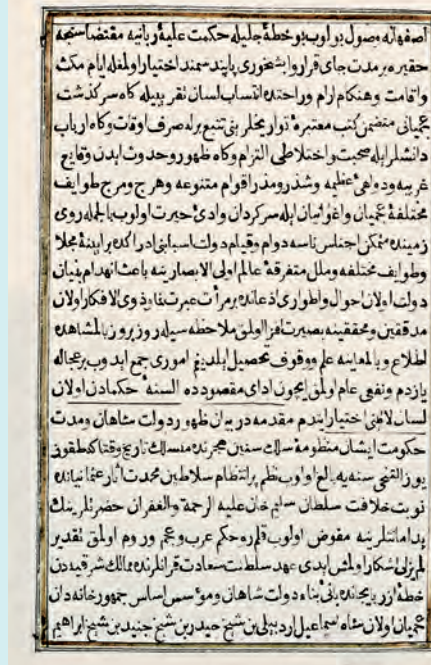 اصفهانه وصول بولوب بو خطهٔ جلیله حکمت علیهٔ ربانیه مقتضاسنجه
حقیره بر مدت جای قرار وابشخوری پایبند سمند اختیار اولمغله ایام مکث
واقامت وهنکام ارام وراحتده انتساب لسان تقریبیله کاه سرکذشت
عجمیانی متضمن کتب معتبرهٔ تواریخلرینی تتبع برله صرف اوقات وکاه ارباب
دانشلرایله صحبت واختلاطی التزام وکاه ظهور وحدوث ایدن وقایع
غریبه ودواهیٔ عظیمه وشذر ومذر اقوام متنوعه وهرج ومرج طوایف
مختلفهٔ عجمیان واغوانیان ایله سرکردان وادیٔ حیرت اولوب بالجمله روی
زمینده متمکن اجناس ناسه دوام وقیام دولت اسبابنی ادراکده برایینهٔ مجلا
وطوایف مختلفه وملل متفرقهٔ عالم اولی الابصارینه باعث انهدام بنیان
دولت اولان احوال واطواری اذعانده برمرأت عبرتنما وذوی الافکار اولان
مدققین ومحققینه بصیرت افزا اولمق ملاحظه سیله روز بروز بالمشاهده
اطلاع وبالمعاینه علم ووقوف تحصیل ایلدیکم اموری جمع ایدوب برعجاله
یازدم ونفعی عام اولمق ایچون ادای مقصودده السنهٔ حکمادن اولان
لسان لاتینی اختیار ایتدم مقدمه در بیان ظهور دولت شاهان ومدت
حکومت ایشان منظومهٔ سلک سنین هجرتده منسلک تاریخ وقتا که طقوز
یوز التمی سنه یه بالغ اولوب نظم پر انتظام سلاطین محمدت اثار عثمانیانده
نوبت خلافت سلطان سلیم خان علیه الرحمة والغفران حضرتلرینک
ید امانتلرینه مفوض اولوب قلمرو حکم عرب وعجم وروم اولمق تقدیر
لم یزلی اشکار اولمش ایدی عهد سلطنت سعادت قرانلرنده ممالک شرقیه دن
خطهٔ اذربایجانده بانیٔ بناء دولت شاهان ومؤسس اساس جمهور خاندان
عجمیان اولان شاه اسماعیل اردبیلی بن شیخ حیدر بن شیخ جنید بن شیخ ابراهیم